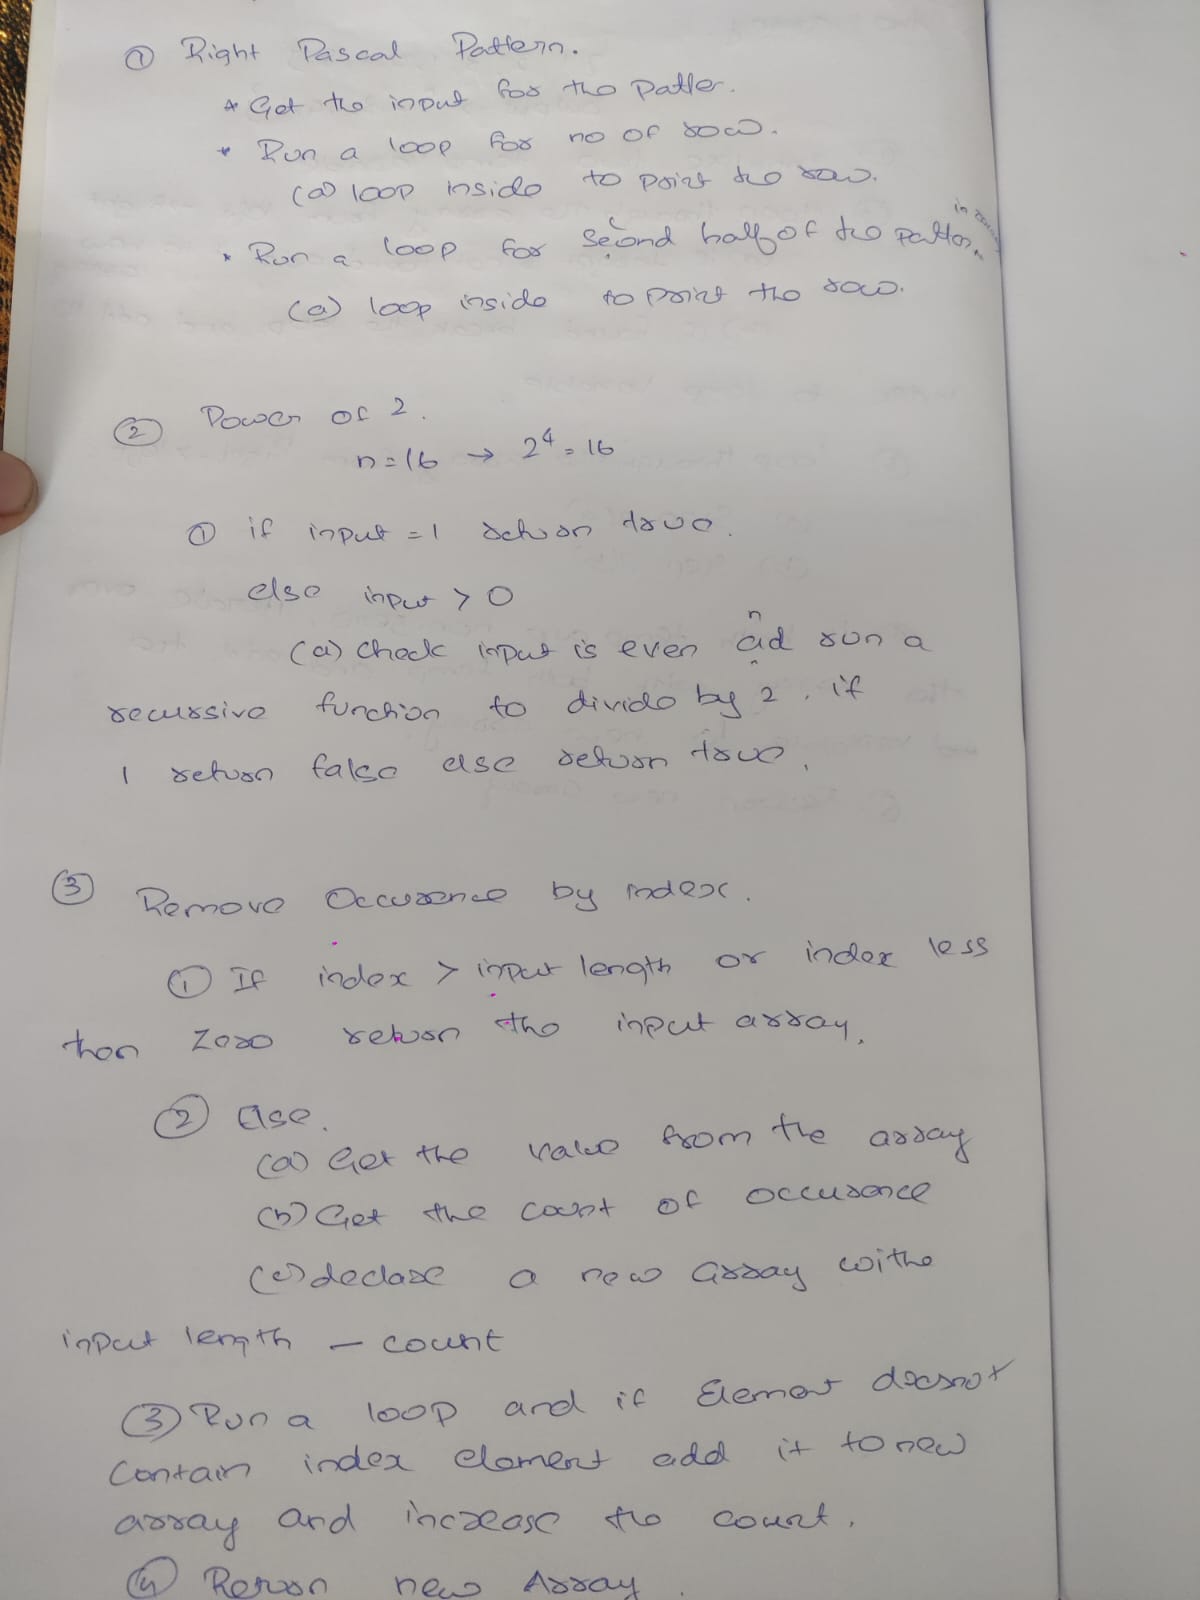 ① Right Pascal Pattern.
* Get the input for the Patter.
* Run a loop for no of row.
(a) loop inside to print the row.
* Run a loop for Second half of the Pattern in
(a) loop inside to print the row.
② Power of 2.
n=16 → 2⁴ = 16
① if input = 1 return true.
else input > 0
(a) check input is even and run a
recursive function to divide by 2. if
1 return false else return true.
③ Remove Occurence by index.
① If index > input length or index less
than Zero return the input array.
② Else.
(a) Get the value from the array
(b) Get the count of occurence
(c) declare a new array withe
input length - count
③ Run a loop and if Element doesnot
Contain index element add it to new
array and increase the count.
④ Return new Array.